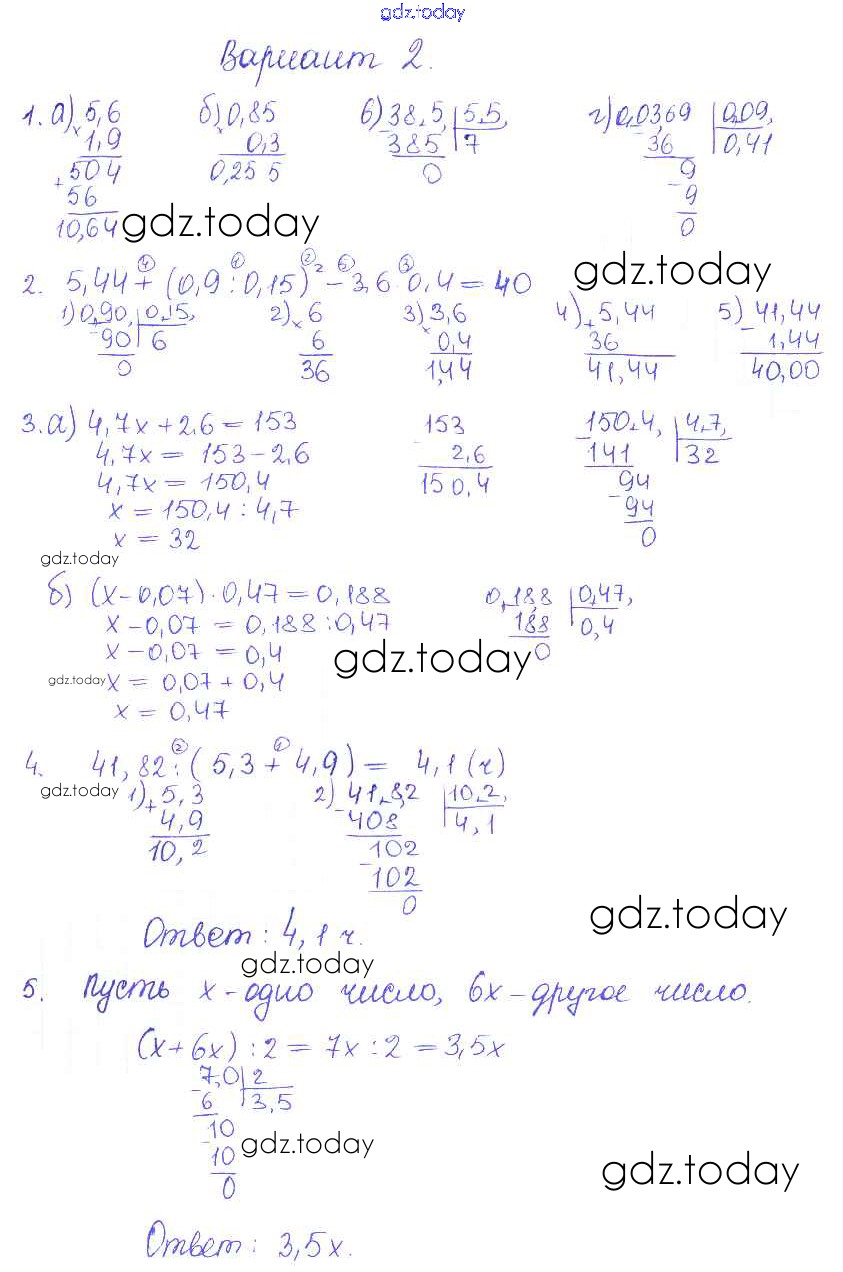 gdz.today
Вариант 2.
1. а) 5,6 б) 0,85 в) 38,5, | 5,5, г) 0,0369 | 0,09,
× 1,9 × 0,3 - 385 | 7 - 36 | 0,41
504 0,255 0 9
+ 56 - 9
10,64 0
gdz.today
gdz.today
2. 5,44 + (0,9 : 0,15)² - 3,6 · 0,4 = 40
④ ① ② ⑤ ③
1) 0,90, | 0,15, 2) × 6 3) 3,6 4) + 5,44 5) 41,44
- 90 | 6 6 × 0,4 36 - 1,44
0 36 1,44 41,44 40,00
3. а) 4,7x + 2,6 = 153 153 150,4, | 4,7,
4,7x = 153 - 2,6 - 2,6 - 141 | 32
4,7x = 150,4 150,4 94
x = 150,4 : 4,7 - 94
x = 32 0
gdz.today
б) (x - 0,07) · 0,47 = 0,188 0,188 | 0,47,
x - 0,07 = 0,188 : 0,47 188 | 0,4
x - 0,07 = 0,4 0
gdz.today
gdz.today x = 0,07 + 0,4
x = 0,47
4. 41,82 : (5,3 + 4,9) = 4,1 (ч)
② ①
gdz.today 1) + 5,3 2) 41,8,2 | 10,2,
4,9 - 408 | 4,1
10,2 102
- 102
0
gdz.today
Ответ: 4,1 ч.
gdz.today
5. Пусть x - одно число, 6x - другое число.
(x + 6x) : 2 = 7x : 2 = 3,5x
7,0 | 2
- 6 | 3,5
10
- 10
0
gdz.today
gdz.today
Ответ: 3,5x.